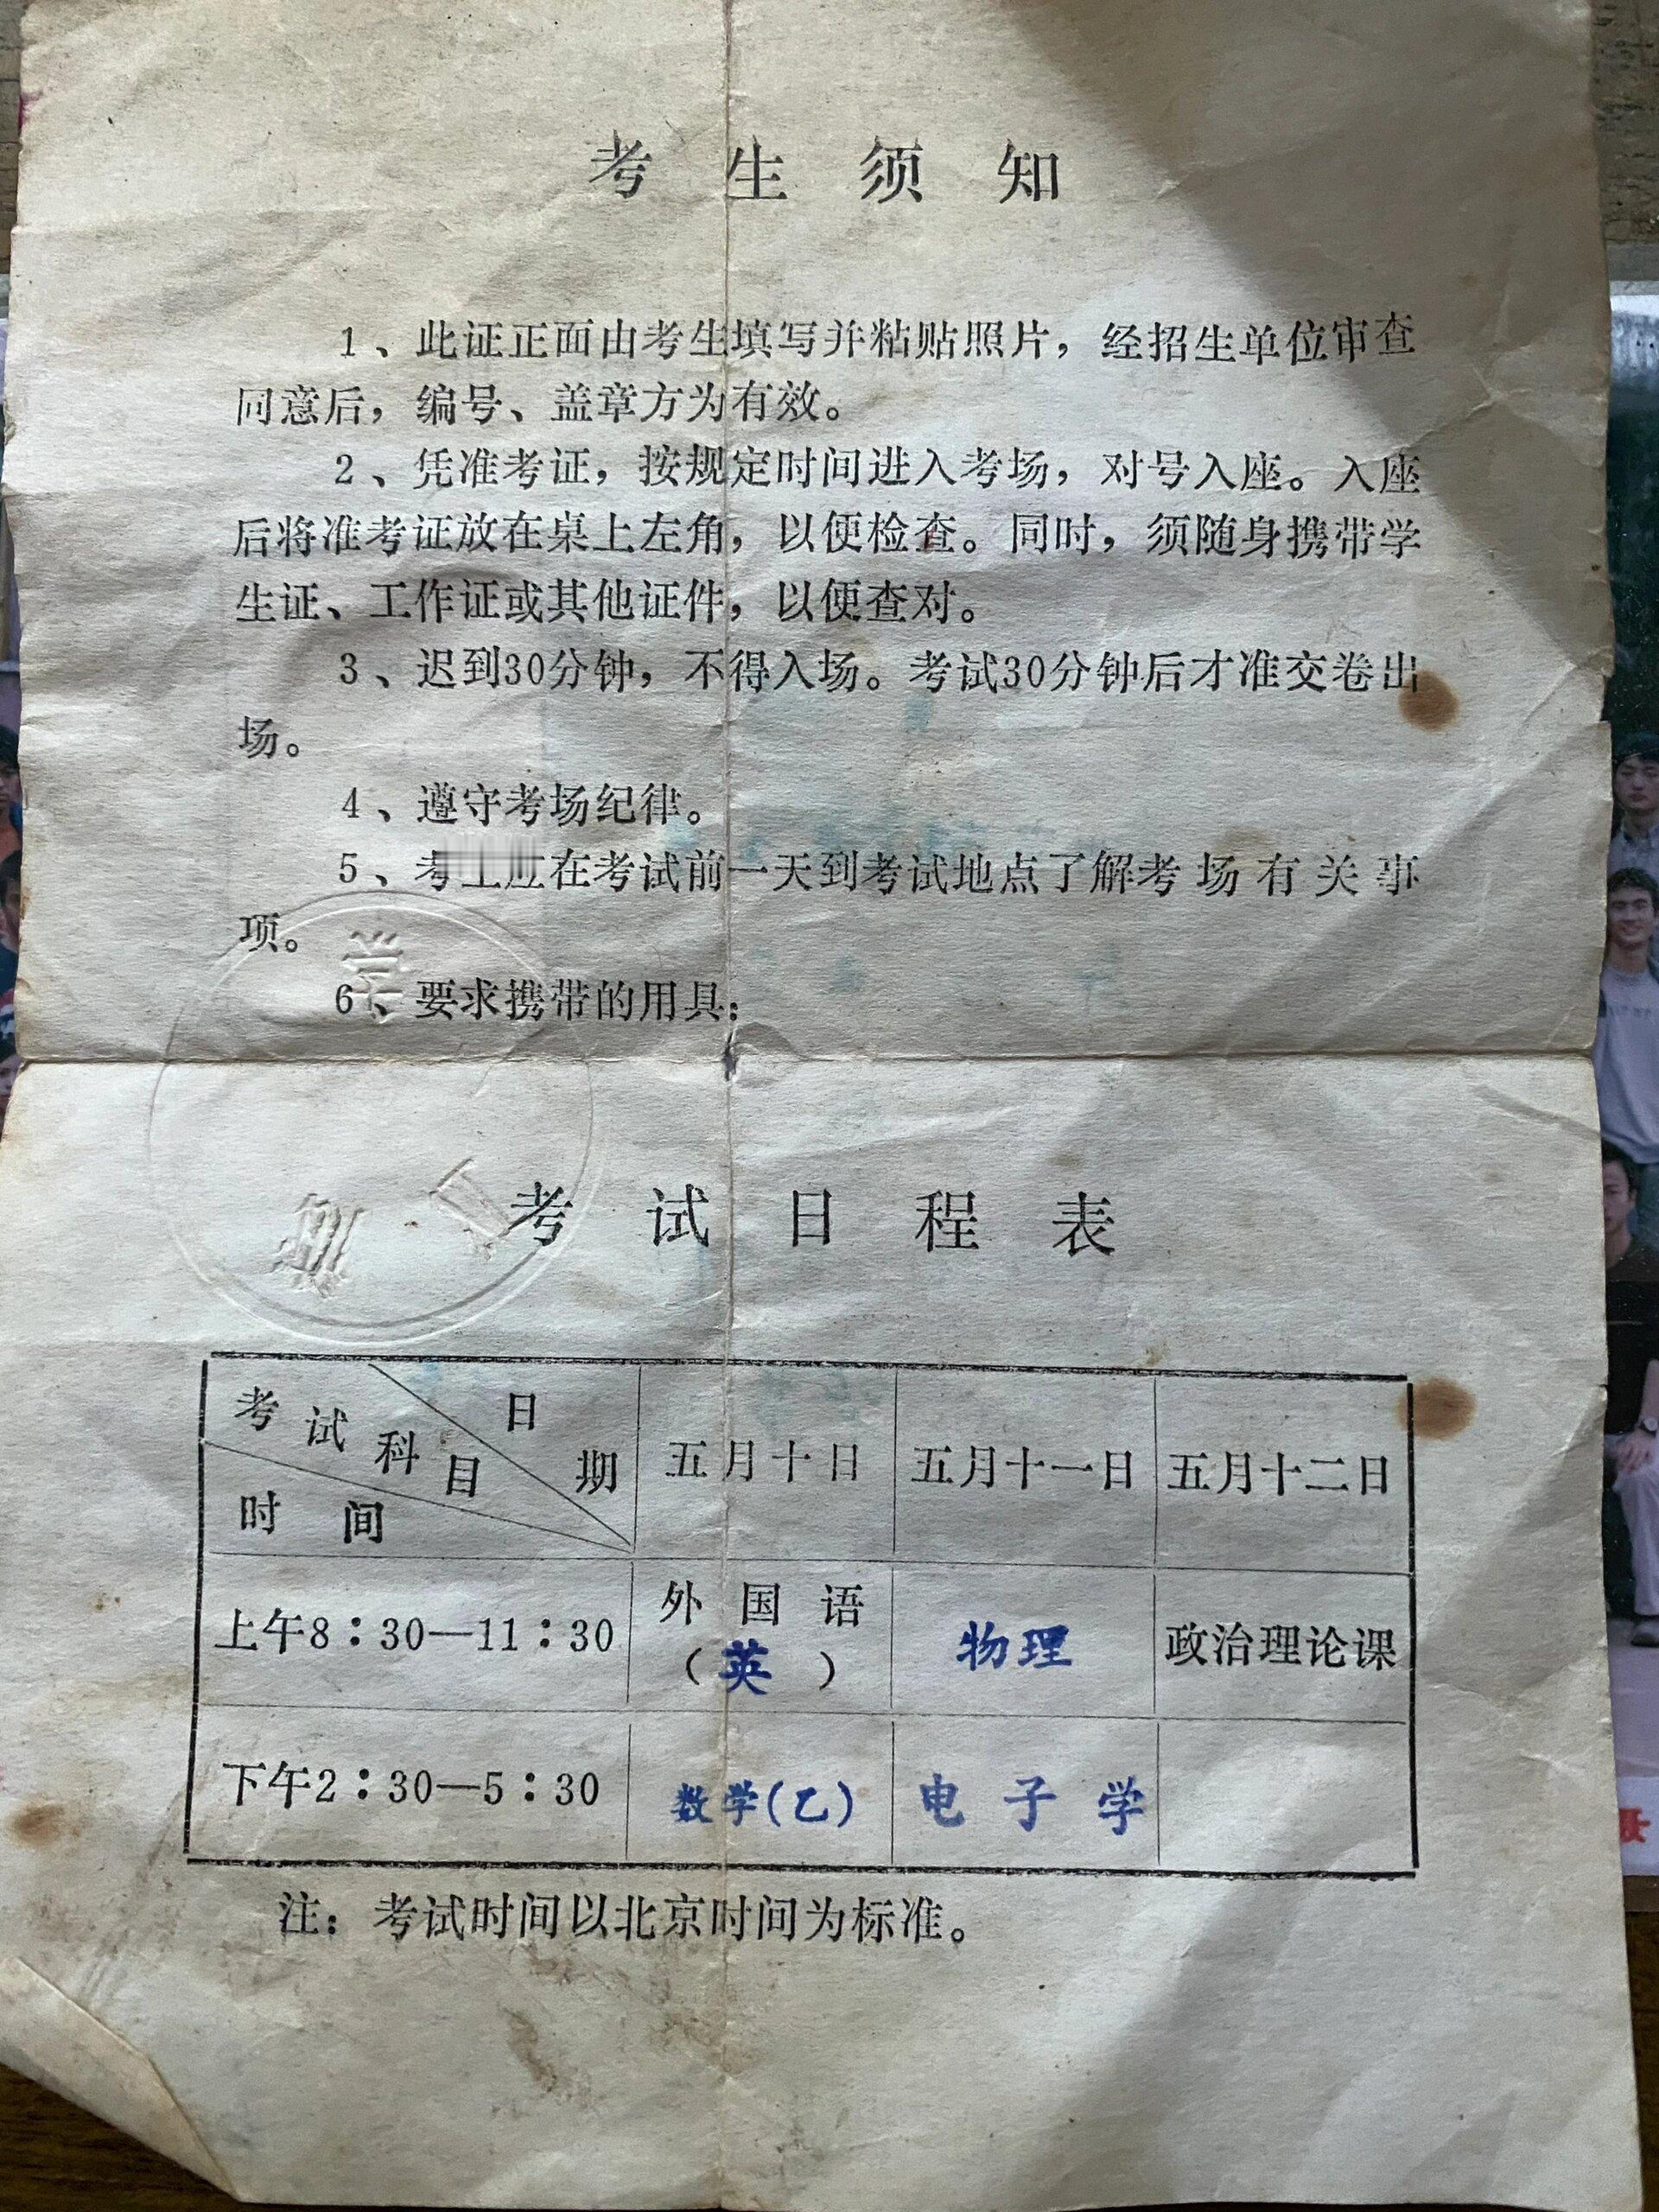 考生须知
1、此证正面由考生填写并粘贴照片，经招生单位审查
同意后，编号、盖章方为有效。
2、凭准考证，按规定时间进入考场，对号入座。入座
后将准考证放在桌上左角，以便检查。同时，须随身携带学
生证、工作证或其他证件，以便查对。
3、迟到30分钟，不得入场。考试30分钟后才准交卷出
场。
4、遵守考场纪律。
5、考 在考试前一天到考试地点了解考场有关事
项。
6、要求携带的用具：
考试日程表
考试科目 日期 时间 五月十日 五月十一日 五月十二日
上午8：30—11：30 外国语（英） 物理 政治理论课
下午2：30—5：30 数学(乙) 电子学
注：考试时间以北京时间为标准。